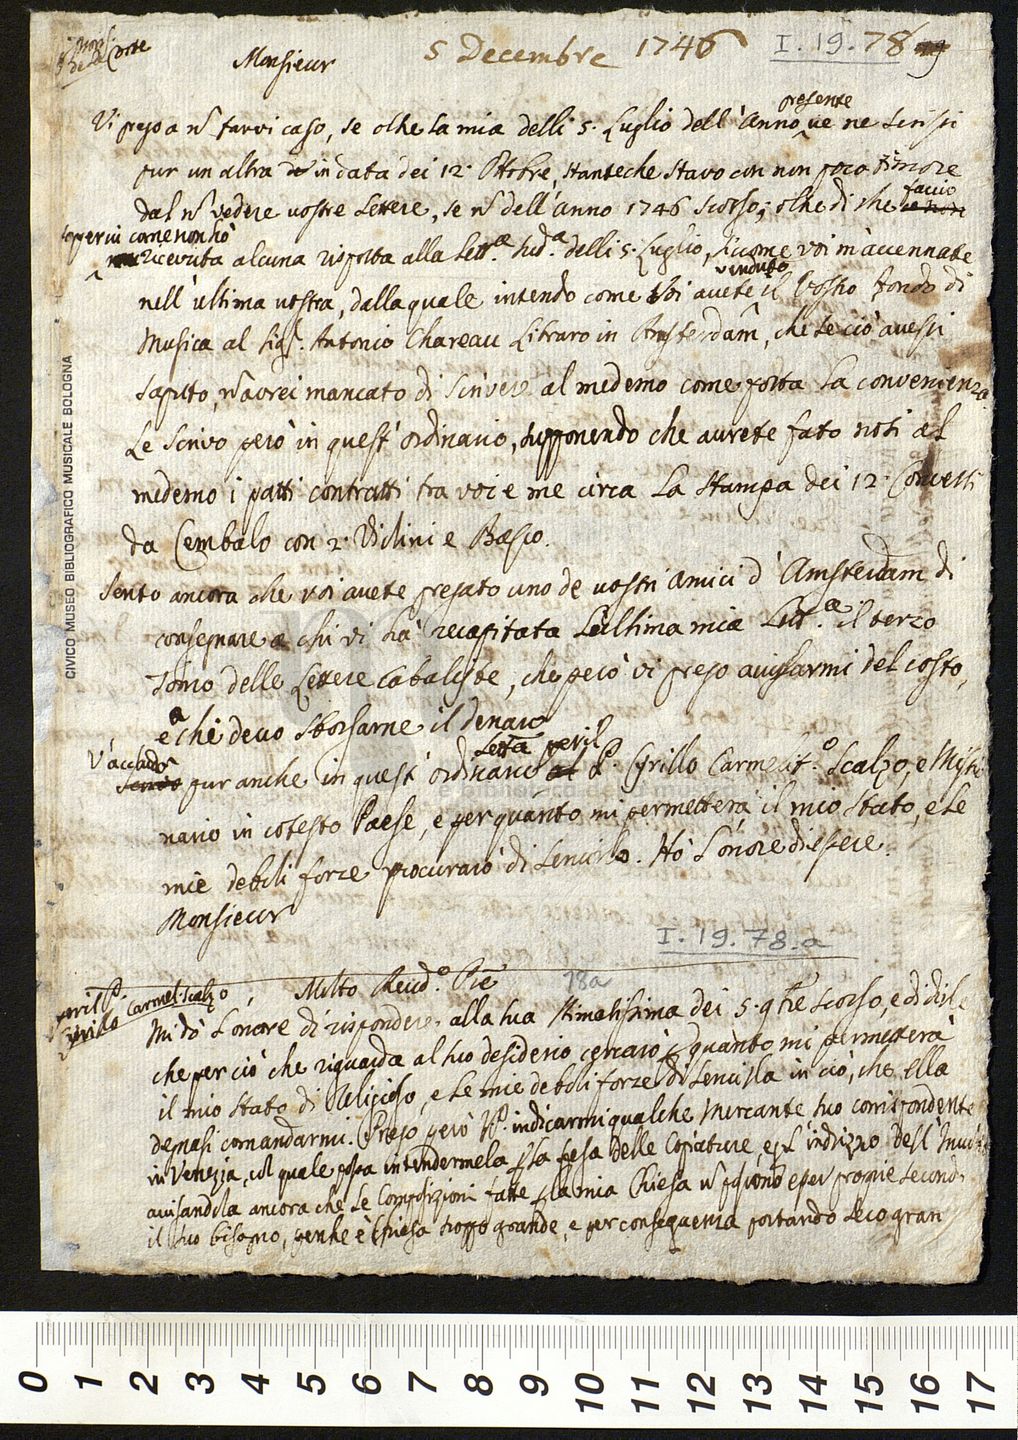 Monsieur
5 Decembre 1746
I. 19. 78
presente
Vi prego a n farvi caso, se oltre la mia delli 5. Luglio dell'Anno ve ne scrissi
pur un altra in data dei 12. Ottobre, stanteche stavo con non poco timore
dal n vedere vostre Lettere, se n dell'Anno 1746 scorso; oltre di che
faccio
sapervi come non hò
ricevuta alcuna risposta alla Lett.a sud.a delli 5. Luglio, siccome voi m'accennate
venduto
nell'ultima vostra, dalla quale intendo come Voi avete il Vostro fondo di
Musica al Sig.r Antonio Chareau Libraro in Amsterdam, che se ciò avessi
saputo, n avrei mancato di scrivere al medemo come porta la convenienza
Le scrivo però in quest'ordinario, supponendo che avrete fato noti al
medemo i patti contratti tra voi e me circa la stampa dei 12. Concerti
da Cembalo con 2. Violini e Basso.
Sento ancora che voi avete pregato uno de vostri Amici d'Amsterdam di
consegnare a chi vi hà recapitata l'ultima mia Lett.a il terzo
Tomo delle Lettere Cabaliste, che però vi prego avisarmi del costo,
e à chi devo sborsarne il denaro
V'accludo
Letta per il
pur anche in quest'ordinario P. Cyrillo Carmelit.o Scalzo, e Missio
nario in cotesto Paese, e per quanto mi permetterà il mio stato, e le
mie deboli forze procurarò di servirlo. Hò l'onore di essere.
Monsieur
I. 19. 78. a
78a
per il P.
Cyrillo Carmel. Scalzo
Molto Reud.o Pre
Mi dò l'onore di rispondere alla sua Stimatissima dei 5. scorso, e di dirle
che per ciò che riguarda al suo desiderio cercarò quanto mi permetterà
il mio stato di Religioso, e le mie deboli forze di servirla in ciò, che Ella
degnasi comandarmi. Prego però V.P. indicarmi qualche Mercante suo corrispondente
in Venezia, col quale possa intendermela la spesa delle Copiature, e l'indizzo dell'Invio
avisandola ancora che le Composizioni fatte la mia Chiesa n sono per proprie secondo
il suo bisogno, perche è Chiesa troppo grande, e per conseguenza portando seco gran
CIVICO MUSEO BIBLIOGRAFICO MUSICALE BOLOGNA
e biblioteca della musica
0 1 2 3 4 5 6 7 8 9 10 11 12 13 14 15 16 17